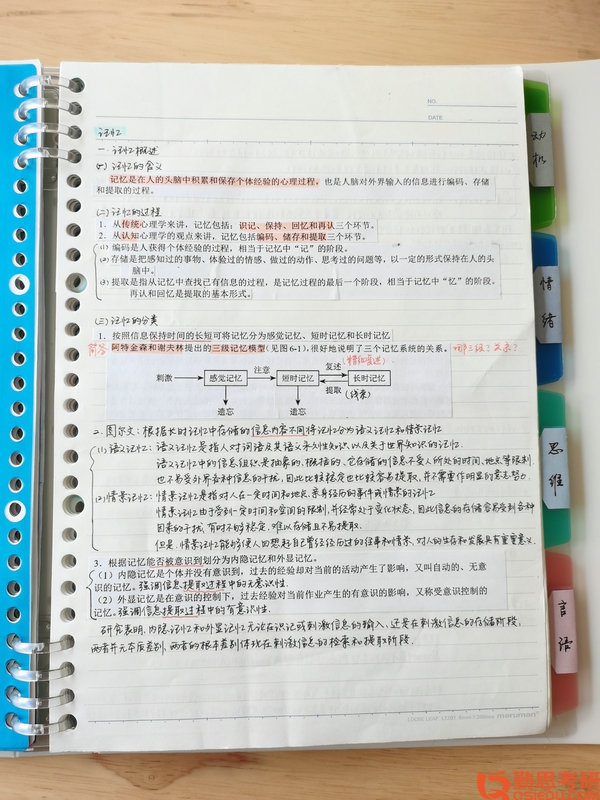 NO.
DATE
记忆
一. 记忆概述
(一) 记忆的含义
记忆是在人的头脑中积累和保存个体经验的心理过程，也是人脑对外界输入的信息进行编码、存储
和提取的过程。
(二) 记忆的过程
1. 从传统心理学来讲，记忆包括：识记、保持、回忆和再认三个环节。
2. 从认知心理学的观点来讲，记忆包括编码、储存和提取三个环节。
(1) 编码是人获得个体经验的过程，相当于记忆中“记”的阶段。
(2) 存储是把感知过的事物、体验过的情感、做过的动作、思考过的问题等，以一定的形式保持在人的头
脑中。
(3) 提取是指从记忆中查找已有信息的过程，是记忆过程的最后一个阶段，相当于记忆中“忆”的阶段。
再认和回忆是提取的基本形式。
(三) 记忆的分类
1. 按照信息保持时间的长短可将记忆分为感觉记忆、短时记忆和长时记忆
简答 阿特金森和谢夫林提出的三级记忆模型（见图6-1），很好地说明了三个记忆系统的关系。 哪三级？关系？
刺激 感觉记忆 注意 短时记忆 复述 (精细复述) 提取 (线索) 长时记忆
遗忘 遗忘
2. 图尔文：根据长时记忆中存储的信息内容不同将记忆分为语义记忆和情景记忆
(1) 语义记忆：语义记忆是指人对词语及其语义系列性知识以及关于世界知识的记忆.
语义记忆中的信息组织是抽象的、概括的、它存储的信息不受人所处的时间、地点等限制.
也不易受外界各种信息的干扰，因此比较稳定也比较容易提取，并不需要作明显的意志努力.
(2) 情景记忆：情景记忆是指对人在一定时间和地点亲身经历的事件或情景的记忆
情景记忆由于受到一定时间和空间的限制，并经常处于变化状态，因此信息的存储容易受到各种
因素的干扰，有时不够稳定，难以存储且不易提取.
但是，情景记忆能够使人回想起自己曾经经历过的往事和情景，对人的生存和发展具有重要意义.
3. 根据记忆能否被意识到划分为内隐记忆和外显记忆。
（1）内隐记忆是个体并没有意识到，过去的经却对当前的活动产生了影响，又叫自动的、无意
识的记忆。强调信息提取过程中的无意识性.
（2）外显记忆是在意识的控制下，过去经验对当前作业产生的有意识的影响，又称受意识控制的
记忆。强调信息提取过程中的有意识性.
研究表明，内隐记忆和外显记忆无论在识记或刺激信息的输入、还是在刺激信息的存储阶段，
两者并无本质差别，两者的根本差别体现在刺激信息的检索和提取阶段.
LOOSE LEAF
maruman
动机
情绪
思维
言语
勤思考研
QISIKUN.COM